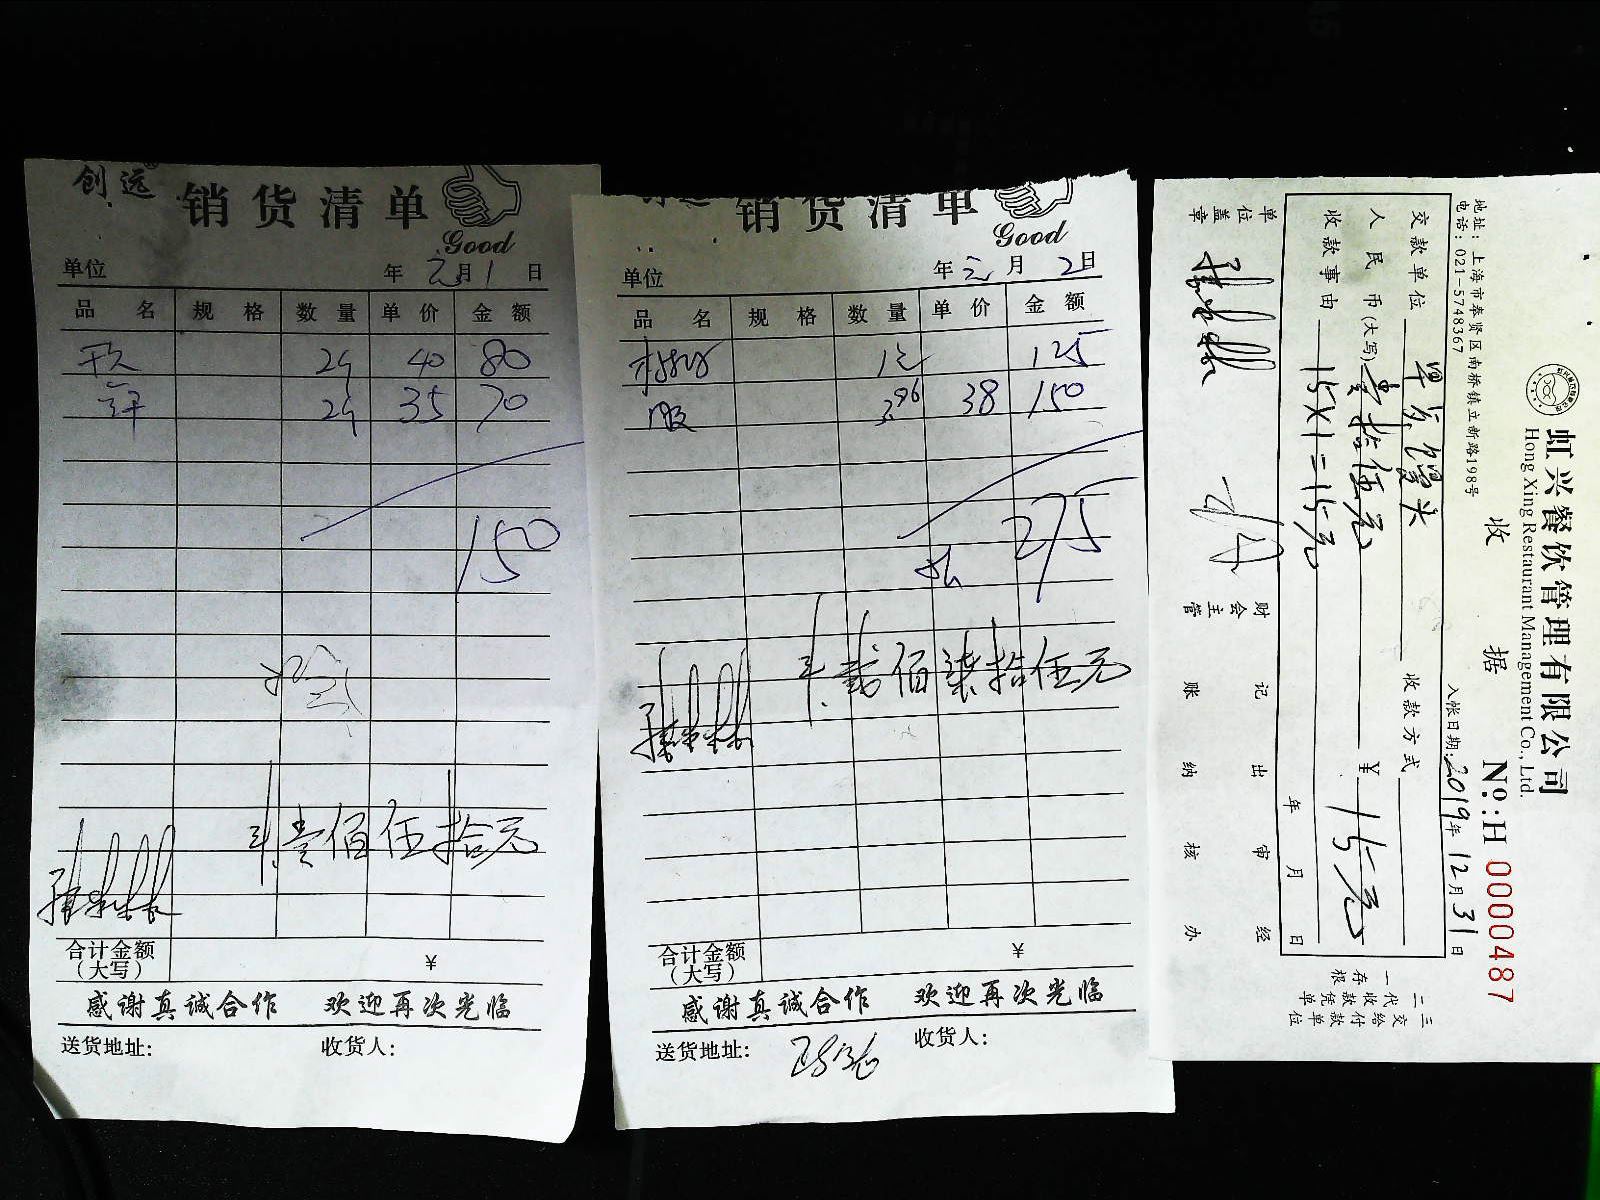 创远
销货清单
Good
单位 年 元月 1 日
品名 规格 数量 单价 金额
40 80
35 70
150
壹佰伍拾元
合计金额
(大写) ¥
感谢真诚合作 欢迎再次光临
送货地址: 收货人:
销货清单
Good
单位 年 元月 2日
品名 规格 数量 单价 金额
125
3.96 38 150
275
贰佰柒拾伍元
合计金额
(大写) ¥
感谢真诚合作 欢迎再次光临
送货地址: 收货人:
虹兴餐饮管理有限公司
Hong Xing Restaurant Management Co., Ltd.
收据
No:H 0000487
地址: 上海市奉贤区南桥镇立新路198号
电话: 021-5748367
入帐日期:2019年12月31日
交款单位 早点馒头 收款方式
人民币(大写) 壹拾伍元 ¥ 15元
收款事由 15×1=15元
年 月 日
单位盖章 财会主管 记账 出纳 审核 经办
一存根
二代收款凭单
三交给付款单位